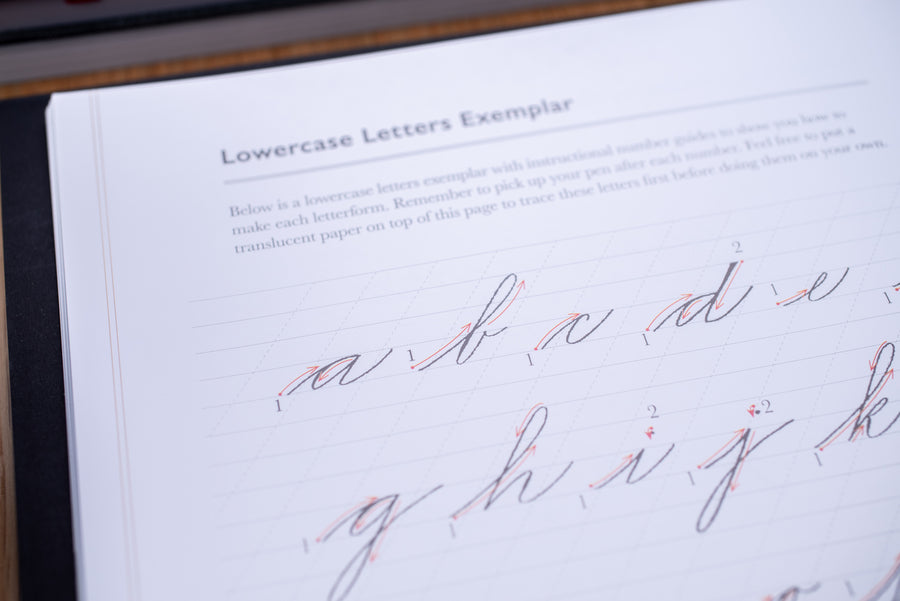 Lowercase Letters Exemplar
Below is a lowercase letters exemplar with instructional number guides to show you how to
make each letterform. Remember to pick up your pen after each number. Feel free to put a
translucent paper on top of this page to trace these letters first before doing them on your own.
2
a b c d e
1 1 1 1 1 1
2 2
g h i j k
1 1 1 1 1
1